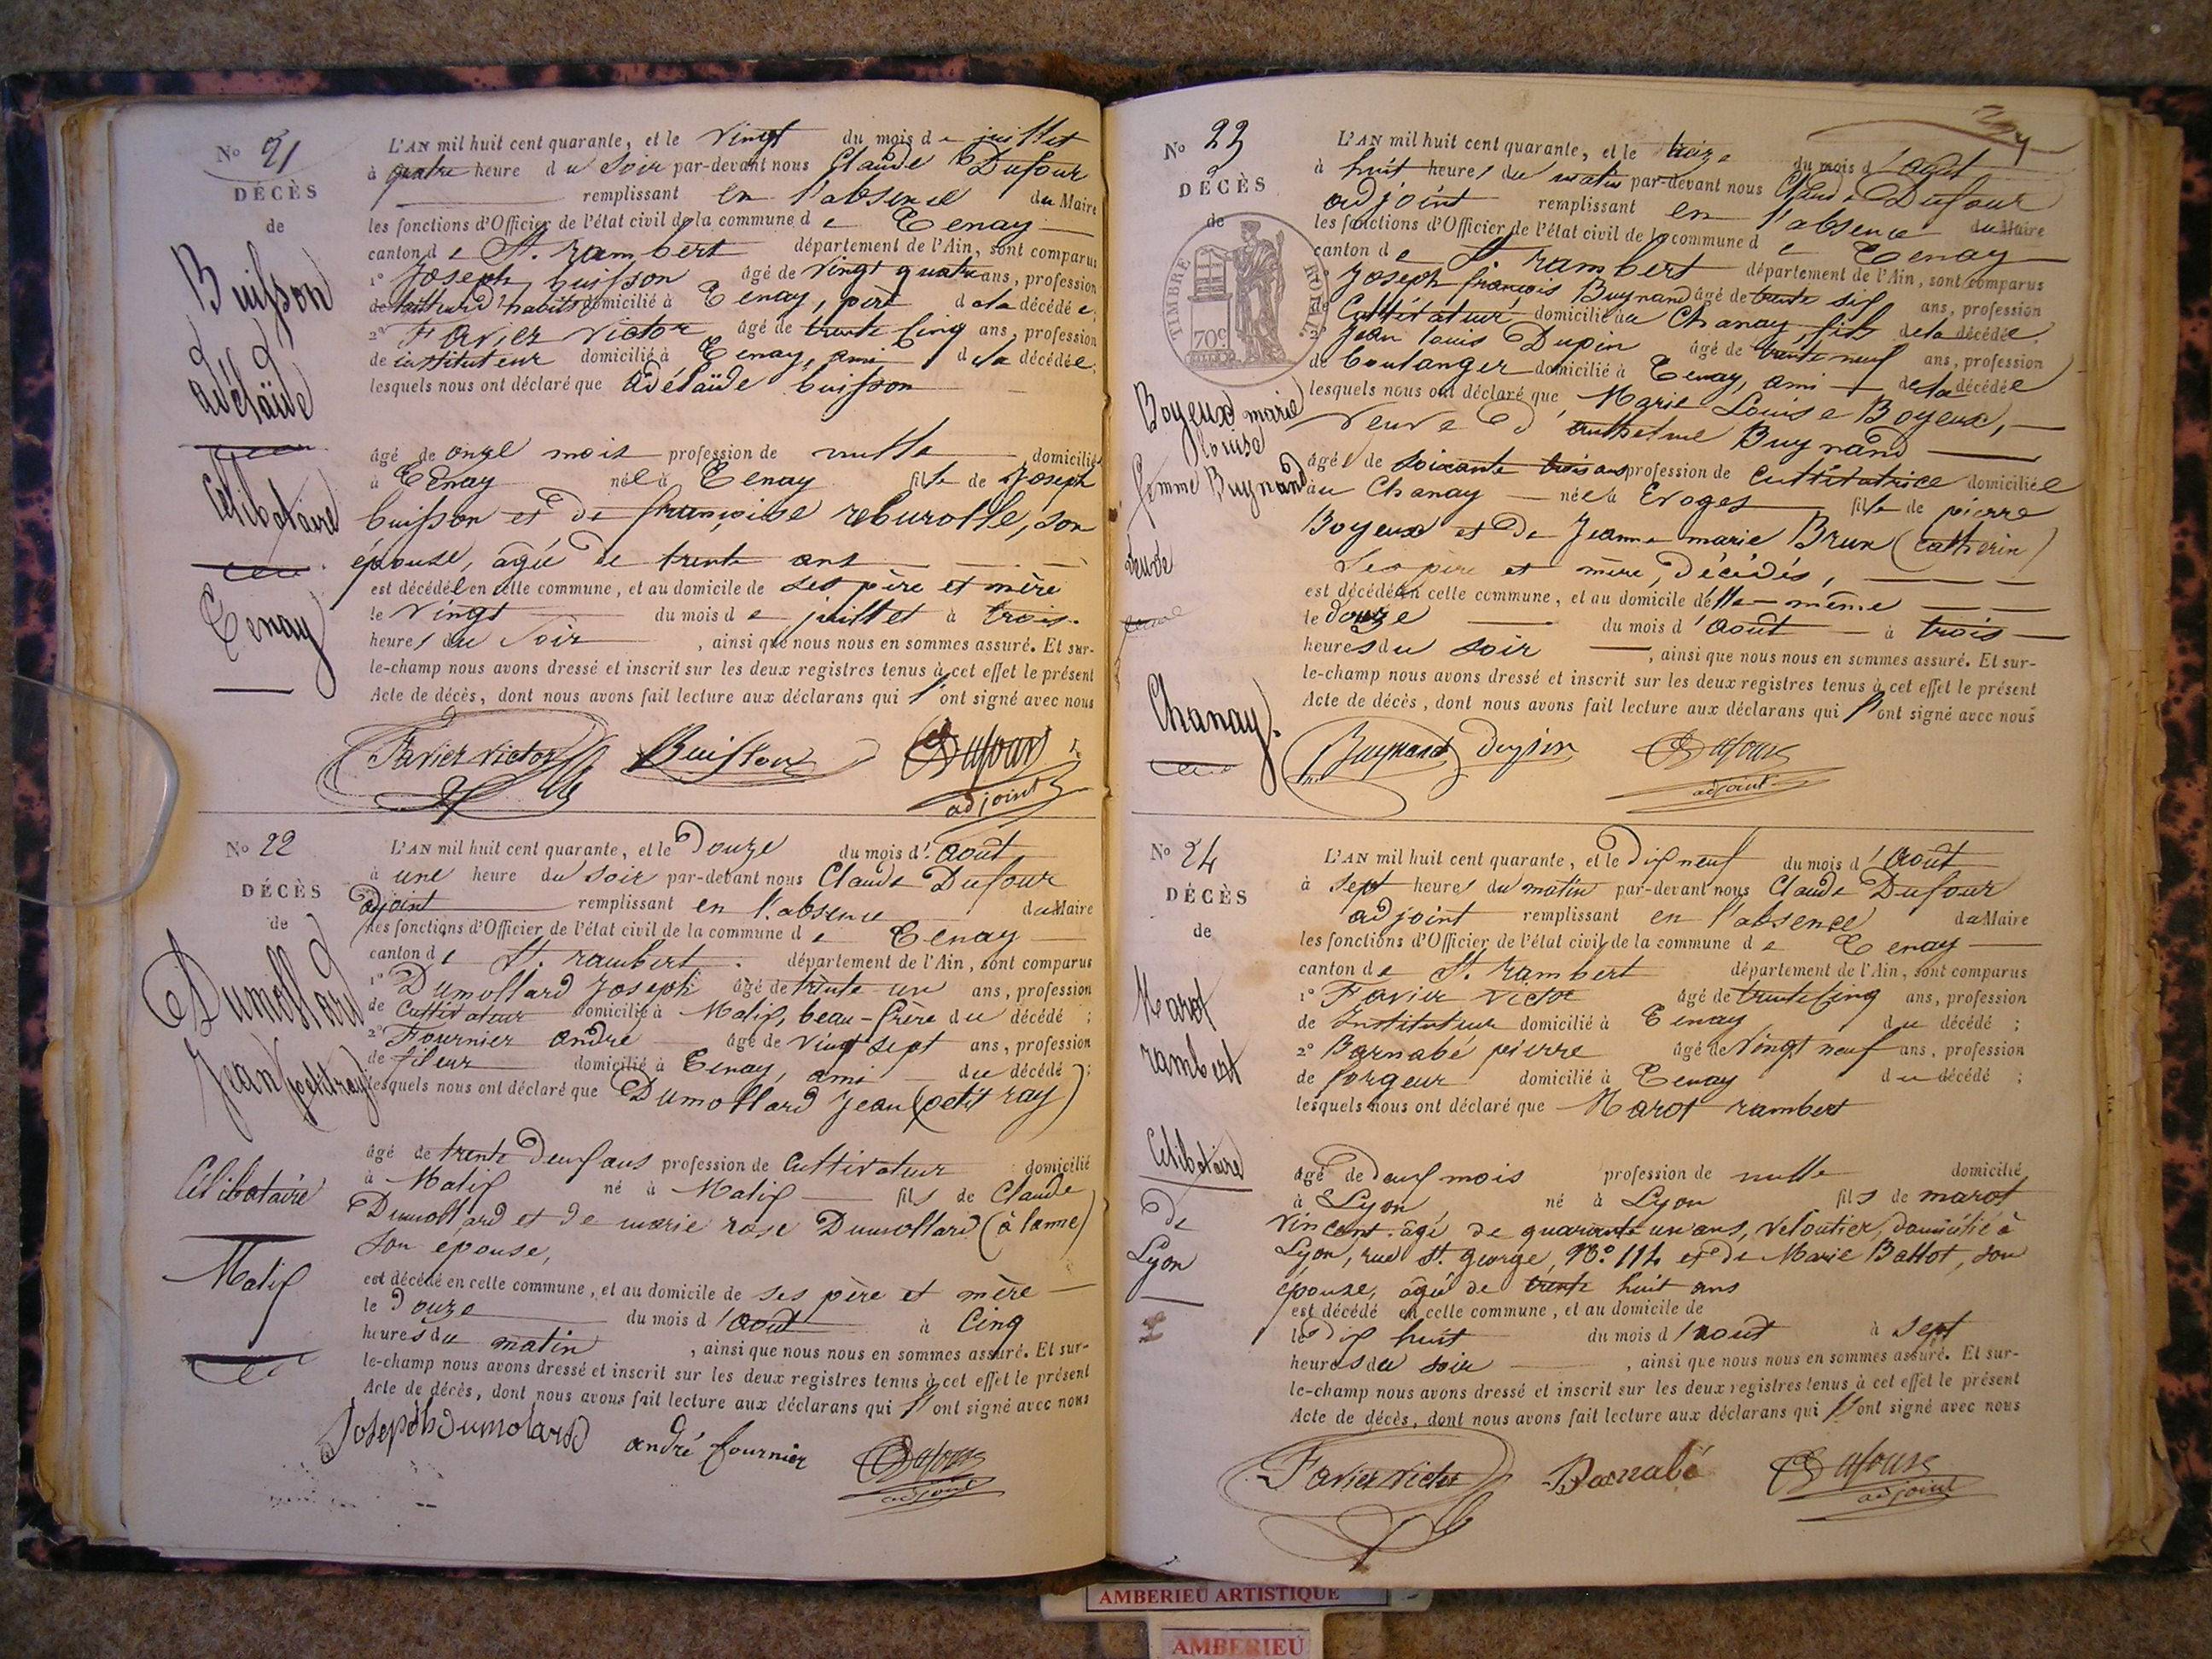 No 21
DÉCÈS
de
Buisson
adélaïde
Célibataire
Tenay
L'AN mil huit cent quarante, et le vingt du mois de juillet
à quatre heure du Soir par-devant nous Claude Dufour
remplissant en l'absence du Maire
les fonctions d'Officier de l'état civil de la commune de Tenay
canton de St. rambert département de l'Ain, sont comparus
1° Joseph buisson âgé de vingt quatre ans, profession
de tailleur d'habits domicilié à Tenay, père de la décédée;
2° Favier victor âgé de trente cinq ans, profession
de instituteur domicilié à Tenay, ami de la décédée;
lesquels nous ont déclaré que adélaïde buisson
âgé de onze mois profession de nulle domicilié
à Tenay née à Tenay fille de Joseph
buisson et de françoise reburolle, son
épouse, âgée de trente ans
est décédée en celle commune, et au domicile de ses père et mère
le vingt du mois de juillet à trois
heures du soir, ainsi que nous nous en sommes assuré. Et sur-
le-champ nous avons dressé et inscrit sur les deux registres tenus à cet effet le présent
Acte de décès, dont nous avons fait lecture aux déclarans qui l'ont signé avec nous
Favier victor Buisson Dufour
adjoint
No 22
DÉCÈS
de
Dumollard
Jean (petit ray)
Célibataire
Matix
L'AN mil huit cent quarante, et le Douze du mois d'août
à une heure du soir par-devant nous Claude Dufour
adjoint remplissant en l'absence du Maire
les fonctions d'Officier de l'état civil de la commune de Tenay
canton de St. rambert département de l'Ain, sont comparus
1° Dumollard Joseph âgé de trente un ans, profession
de Cultivateur domicilié à Matix, beau-frère du décédé;
2° Fournier andré âgé de vingt sept ans, profession
de fileur domicilié à Tenay, ami du décédé;
lesquels nous ont déclaré que Dumollard Jean (petit ray)
âgé de trente deux ans profession de Cultivateur domicilié
à Matix né à Matix fils de Claude
Dumollard et de marie rose Dumollard (à lanne)
Son épouse,
est décédé en celle commune, et au domicile de ses père et mère
le Douze du mois d'août à Cinq
heures du matin, ainsi que nous nous en sommes assuré. Et sur-
le-champ nous avons dressé et inscrit sur les deux registres tenus à cet effet le présent
Acte de décès, dont nous avons fait lecture aux déclarans qui l'ont signé avec nous
Joseph Dumolard andré fournier Dufour
adjoint
No 23
DÉCÈS
de
TIMBRE ROYAL
70c
Boyeux marie
louise
femme Buynand
veuve
Chanay
L'AN mil huit cent quarante, et le treize du mois d'août
à huit heures du matin par-devant nous Claude Dufour
adjoint remplissant en l'absence du Maire
les fonctions d'Officier de l'état civil de la commune de Tenay
canton de St. rambert département de l'Ain, sont comparus
1° Joseph françois Buynand âgé de trente six ans, profession
de Cultivateur domicilié au Chanay, fils de la décédée,
2° Jean louis Dupin âgé de trente neuf ans, profession
de boulanger domicilié à Tenay, ami de la décédée
lesquels nous ont déclaré que Marie Louise Boyeux,
veuve d'anthelme Buynand
âgée de soixante trois ans profession de Cultivatrice domiciliée
au Chanay née à Evoges fille de pierre
Boyeux et de Jeanne marie Brun (Catherin)
Ses père et mère, Décédés,
est décédée en celle commune, et au domicile d'elle-même
le douze du mois d'août à trois
heures du soir, ainsi que nous nous en sommes assuré. Et sur-
le-champ nous avons dressé et inscrit sur les deux registres tenus à cet effet le présent
Acte de décès, dont nous avons fait lecture aux déclarans qui l'ont signé avec nous
Buynand dupin Dufour
adjoint
No 24
DÉCÈS
de
Marot
rambert
Célibataire
de
Lyon
L'AN mil huit cent quarante, et le dix neuf du mois d'août
à sept heures du matin par-devant nous Claude Dufour
adjoint remplissant en l'absence du Maire
les fonctions d'Officier de l'état civil de la commune de Tenay
canton de St. rambert département de l'Ain, sont comparus
1° Favier victor âgé de trente cinq ans, profession
de Instituteur domicilié à Tenay du décédé;
2° Barnabé pierre âgé de vingt neuf ans, profession
de forgeur domicilié à Tenay du décédé;
lesquels nous ont déclaré que Marot rambert
âgé de deux mois profession de nulle domicilié
à Lyon né à Lyon fils de marot
vincent âgé de quarante un ans, veloutier, domicilié à
Lyon, rue St. george, No. 114 et de Marie Ballot, son
épouse, âgée de trente huit ans
est décédé en celle commune, et au domicile de
le dix huit du mois d'août à sept
heures du soir, ainsi que nous nous en sommes assuré. Et sur-
le-champ nous avons dressé et inscrit sur les deux registres tenus à cet effet le présent
Acte de décès, dont nous avons fait lecture aux déclarans qui l'ont signé avec nous
Favier victor Barnabé Dufour
adjoint
AMBERIEU ARTISTIQUE
AMBERIEU